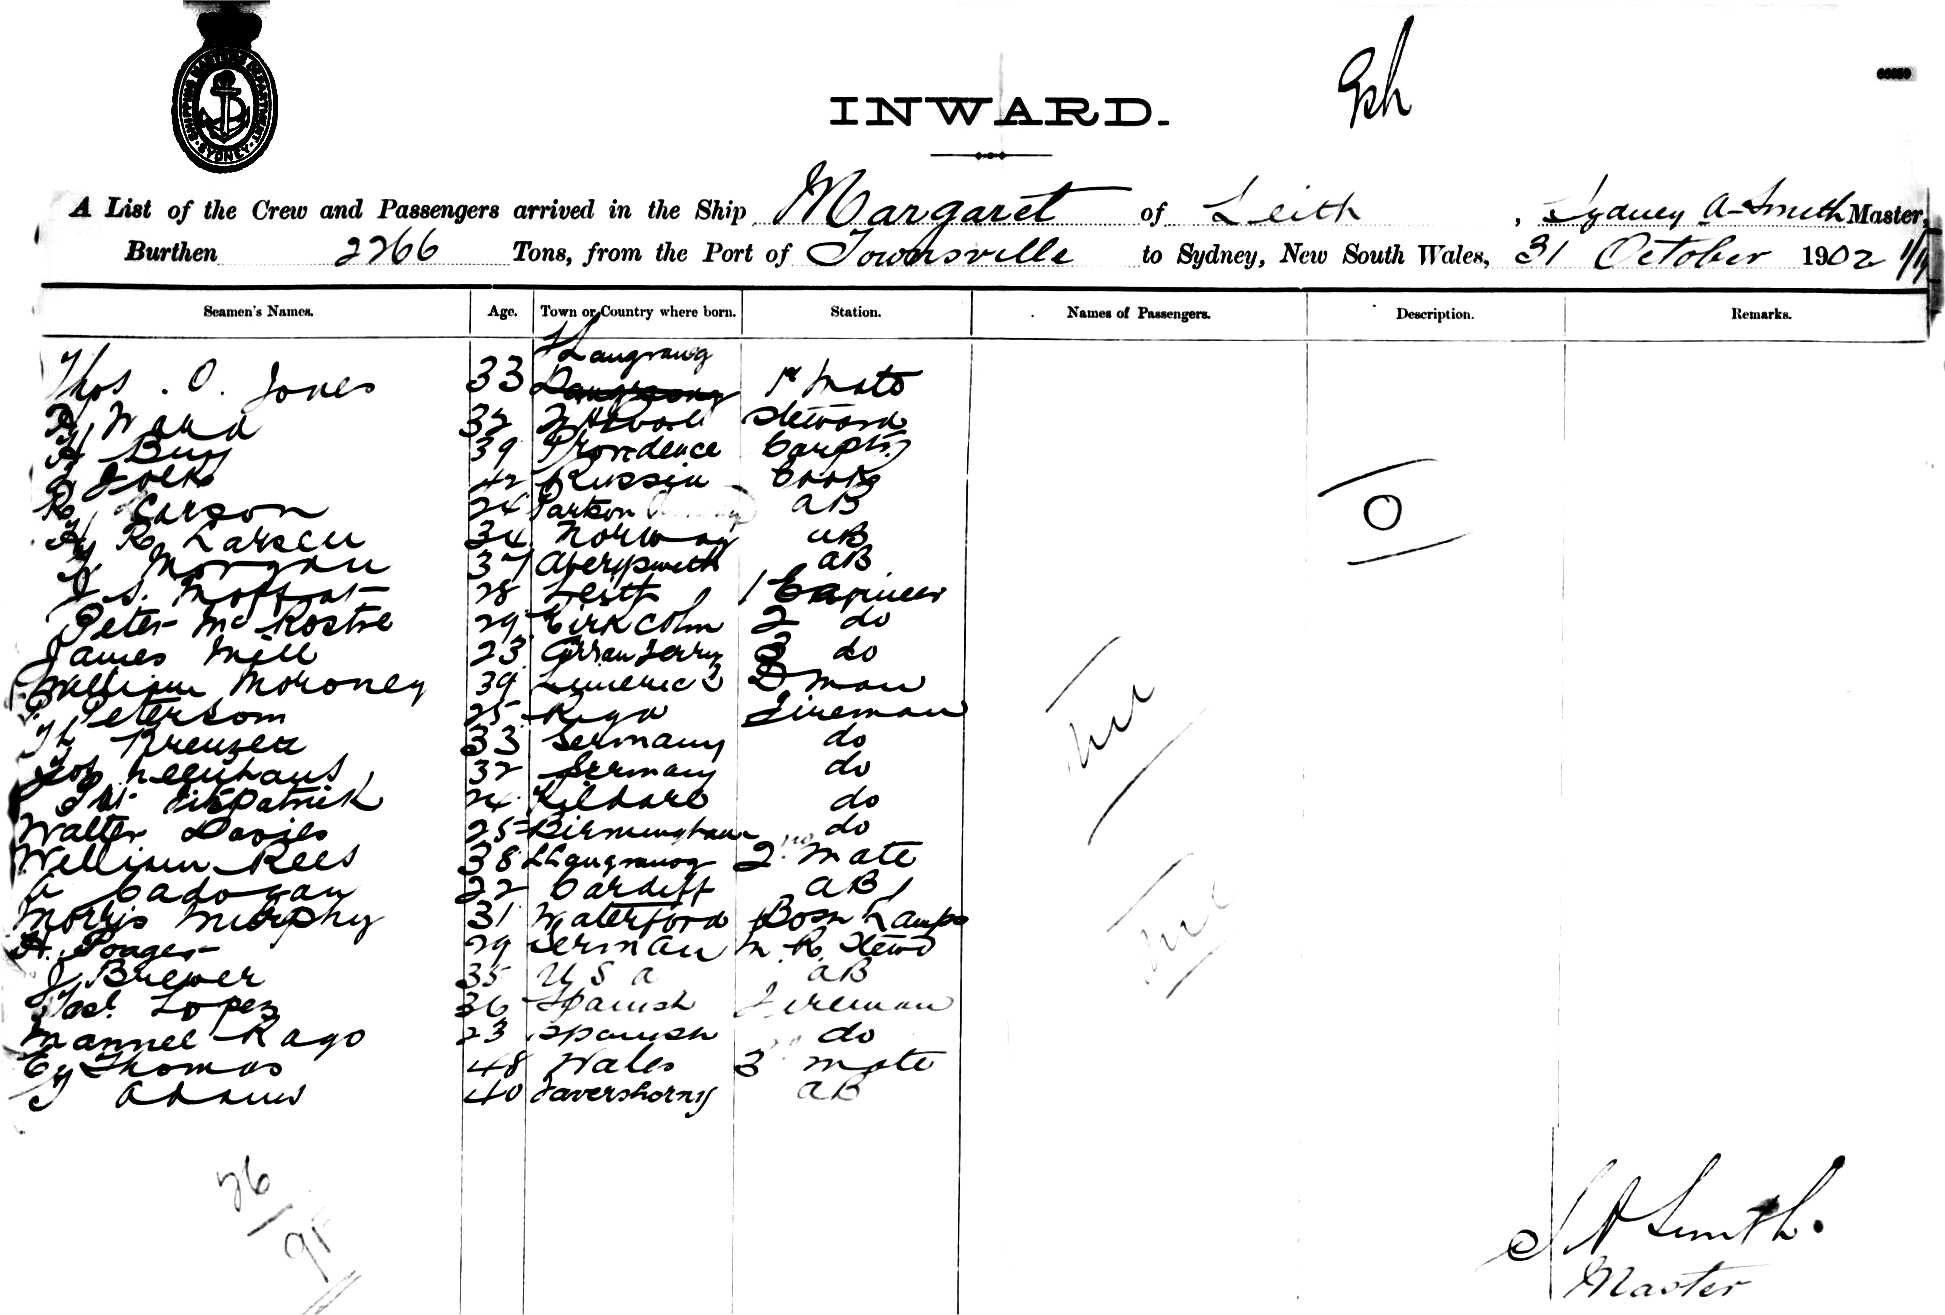 SHIPPING MASTERS DEPARTMENT
SYDNEY
INWARD.
A List of the Crew and Passengers arrived in the Ship Margaret of Leith, Sydney A Smith Master,
Burthen 2266 Tons, from the Port of Townsville to Sydney, New South Wales, 31 October 1902
Seamen's Names. Age. Town or Country where born. Station. Names of Passengers. Description. Remarks.
Llangranog
Thos. O. Jones 33 1st Mate
Ward 32 Steward
39 Providence Carptr
42 Russia Cook
Carson 24 AB
R Larsen 34 Norway AB
Morgan 37 Aberystwith AB
J. S. Moffat 28 Leith 1 Engineer
Peter McRostie 29 Kirkcolm 2 do
James Mill 23 3 do
William Moroney 39 Limerick D man
Peterson 25 Riga Fireman
Kreuzer 33 Germany do
Neuhaus 32 Germany do
Fitzpatrick 24 Kildare do
Walter Davies 25 Birmingham do
William Rees 38 Llangranog 2nd Mate
Cadogan 22 Cardiff AB
Morris Murphy 31 Waterford Bosn Lamps
H. 29 German M. R. Stewd
J Brewer 35 U S A AB
Lopez 36 Spanish Fireman
Manuel Rago 23 Spanish do
Ey Thomas 48 Wales 3 mate
Adams 40 AB
O
26
S A Smith.
Master